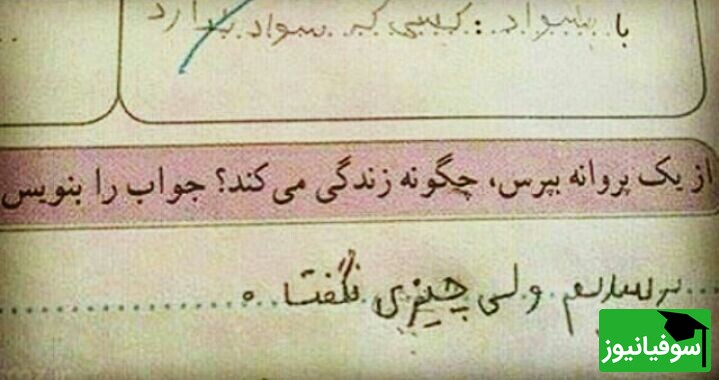 با بیسواد : کسی که سواد ندارد
از یک پروانه بپرس، چگونه زندگی می‌کند؟ جواب را بنویس
پرسیدم ولی چیزی نگفتا .
سوفیانیوز